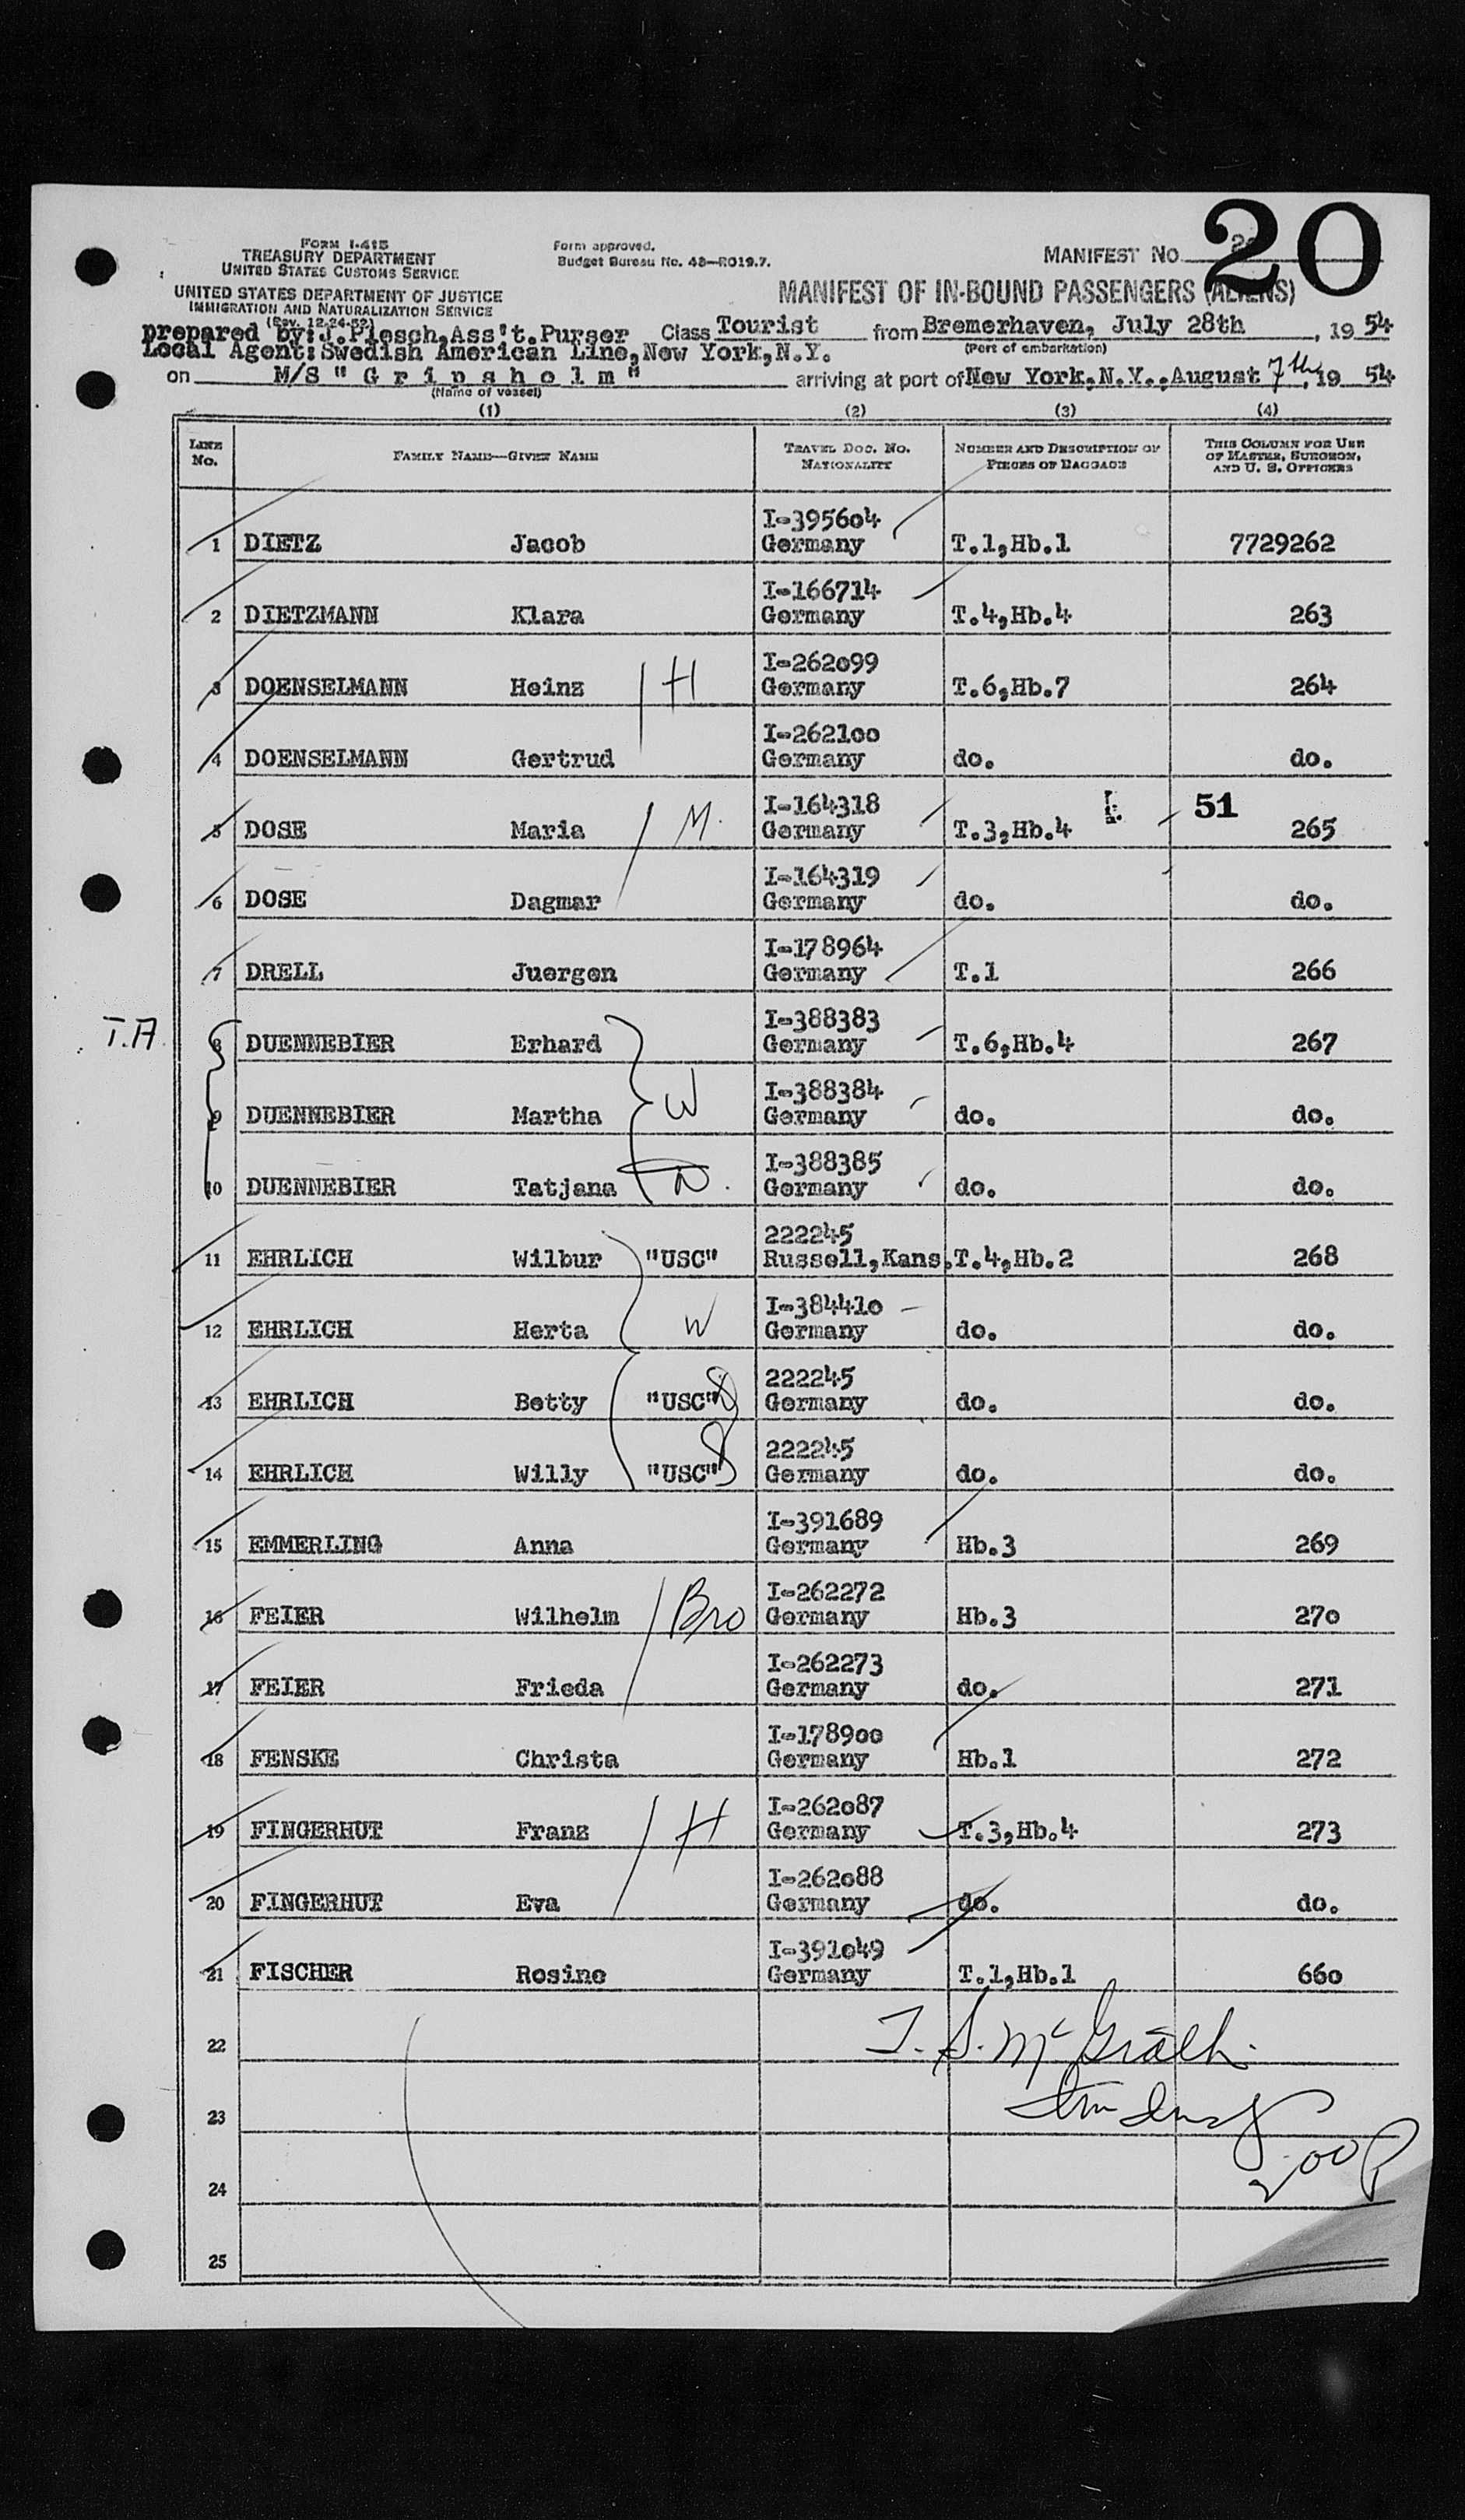 20
FORM I-415
TREASURY DEPARTMENT
UNITED STATES CUSTOMS SERVICE
Form approved.
Budget Bureau No. 43—R019.7.
MANIFEST NO.
UNITED STATES DEPARTMENT OF JUSTICE
IMMIGRATION AND NATURALIZATION SERVICE
(Rev. 12-24-52)
MANIFEST OF IN-BOUND PASSENGERS (ALIENS)
prepared by:J.Plesch,Ass't.Purser Class Tourist from Bremerhaven, July 28th, 1954
Local Agent:Swedish American Line,New York,N.Y. (Port of embarkation)
on M/S "Gripsholm" arriving at port of New York,N.Y.,August 7th, 19 54
(Name of vessel)
(1) (2) (3) (4)
LINE No. FAMILY NAME—GIVEN NAME TRAVEL DOC. NO. NATIONALITY NUMBER AND DESCRIPTION OF PIECES OF BAGGAGE THIS COLUMN FOR USE OF MASTER, SURGEON, AND U. S. OFFICERS
I-395604
1 DIETZ Jacob Germany T.1,Hb.1 7729262
I-166714
2 DIETZMANN Klara Germany T.4,Hb.4 263
I-262099
3 DOENSELMANN Heinz H Germany T.6,Hb.7 264
I-262100
4 DOENSELMANN Gertrud Germany do. do.
I-164318 51
5 DOSE Maria M. Germany T.3,Hb.4 265
I-164319
6 DOSE Dagmar Germany do. do.
I-178964
7 DRELL Juergen Germany T.1 266
I-388383
T.A. 8 DUENNEBIER Erhard Germany T.6,Hb.4 267
I-388384
9 DUENNEBIER Martha W Germany do. do.
I-388385
10 DUENNEBIER Tatjana D. Germany do. do.
222245
11 EHRLICH Wilbur "USC" Russell,Kans. T.4,Hb.2 268
I-384410
12 EHRLICH Herta W Germany do. do.
222245
13 EHRLICH Betty "USC" Germany do. do.
222245
14 EHRLICH Willy "USC" Germany do. do.
I-391689
15 EMMERLING Anna Germany Hb.3 269
I-262272
16 FEIER Wilhelm Bro Germany Hb.3 270
I-262273
17 FEIER Frieda Germany do. 271
I-178900
18 FENSKE Christa Germany Hb.1 272
I-262087
19 FINGERHUT Franz H Germany T.3,Hb.4 273
I-262088
20 FINGERHUT Eva Germany do. do.
I-391049
21 FISCHER Rosine Germany T.1,Hb.1 660
22 T. S. McGrath.
23
24 200P
25